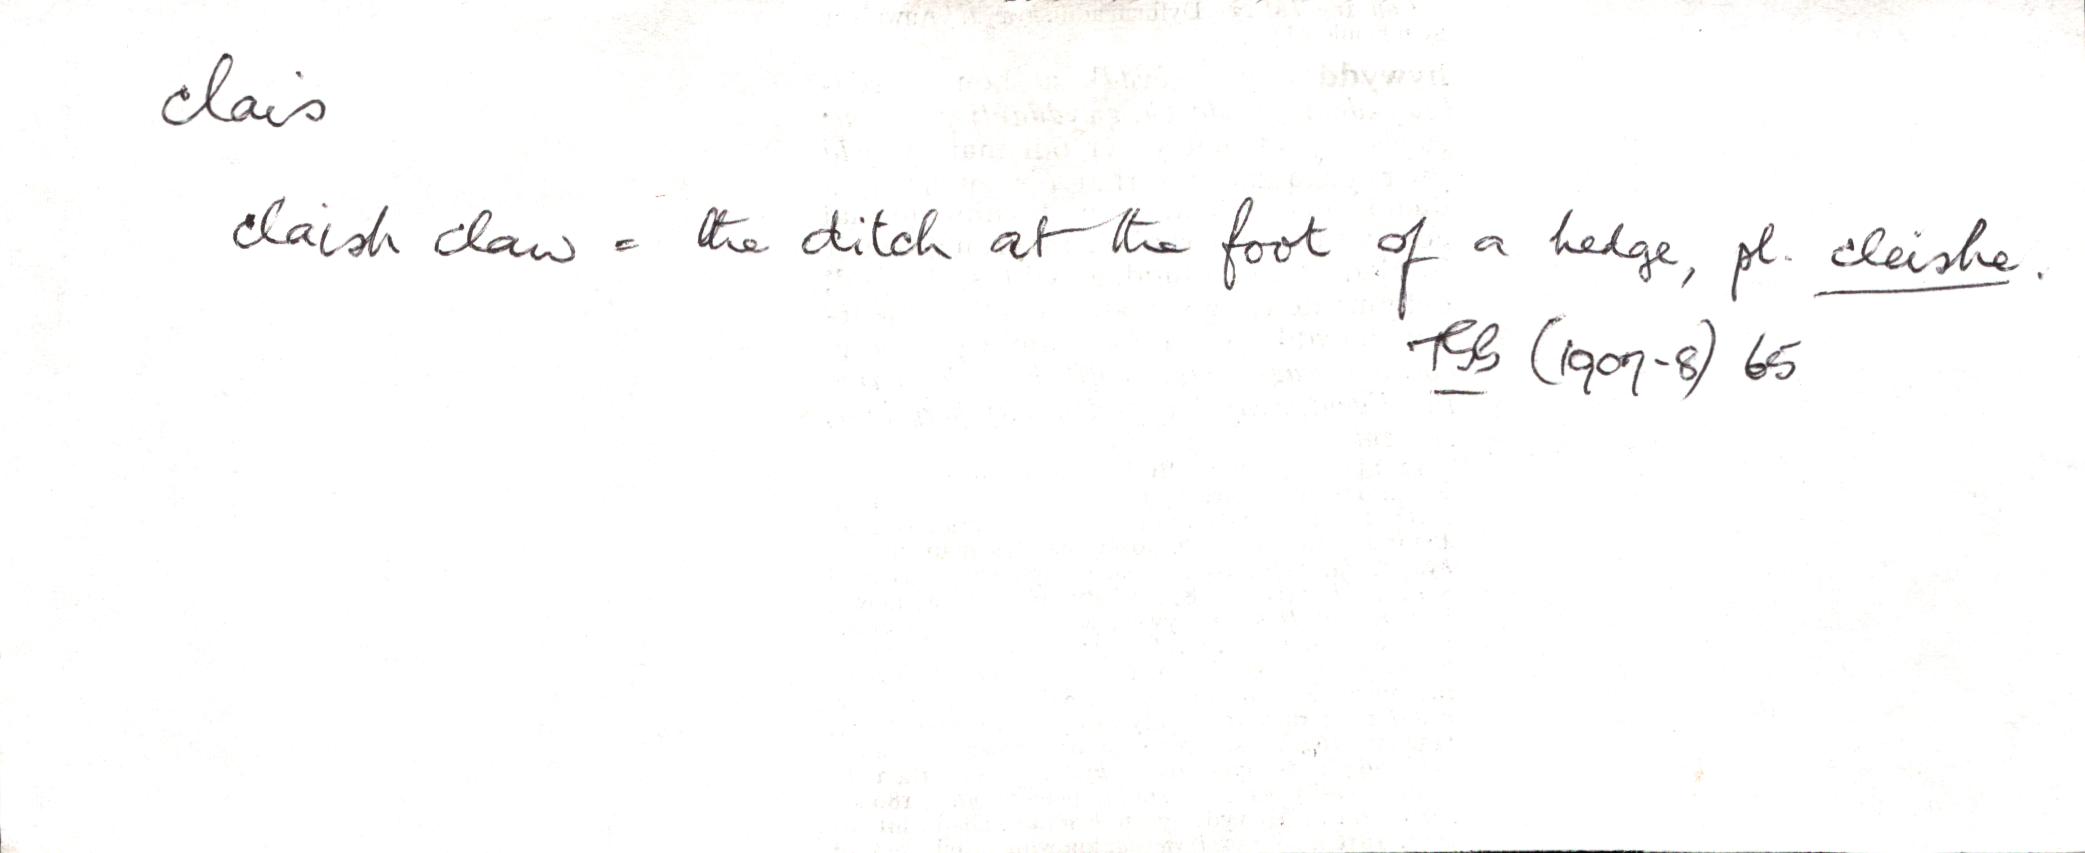 clais
claish claw = the ditch at the foot of a hedge, pl. cleishe.
(1907-8) 65